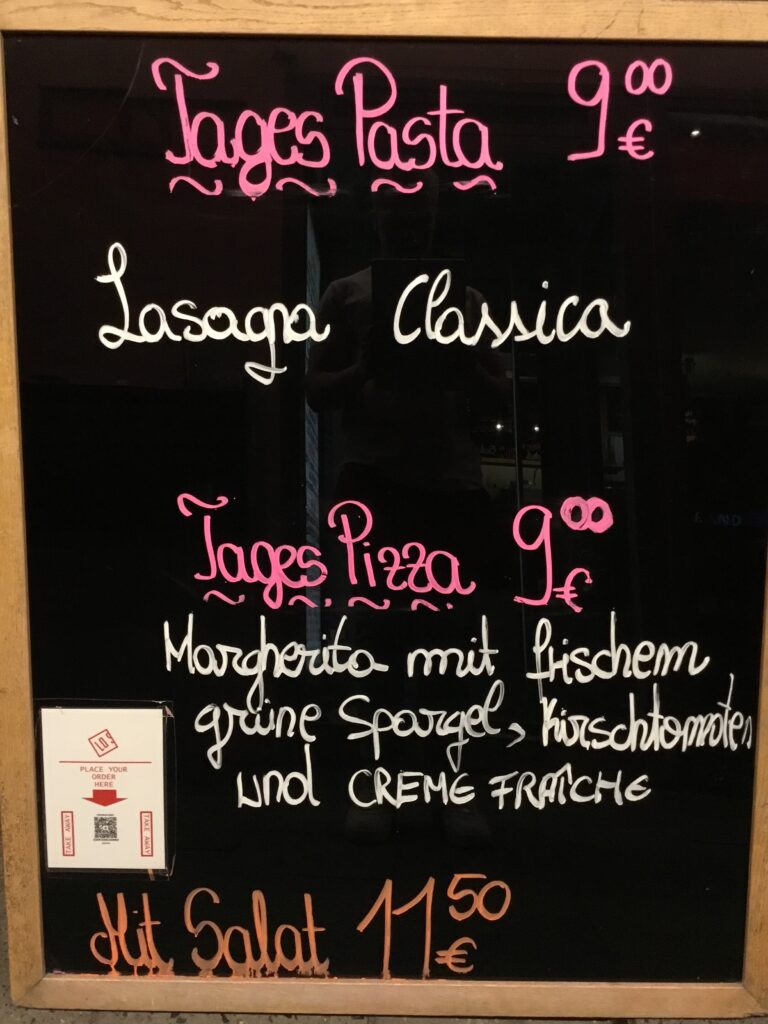 Tages Pasta 9⁰⁰ €
Lasagna Classica
Tages Pizza 9⁰⁰ €
Margherita mit frischem
grüne Spargel, Kirschtomaten
und CREME FRAÎCHE
PLACE YOUR
ORDER
HERE
TAKE AWAY
TAKE AWAY
Mit Salat 11⁵⁰ €